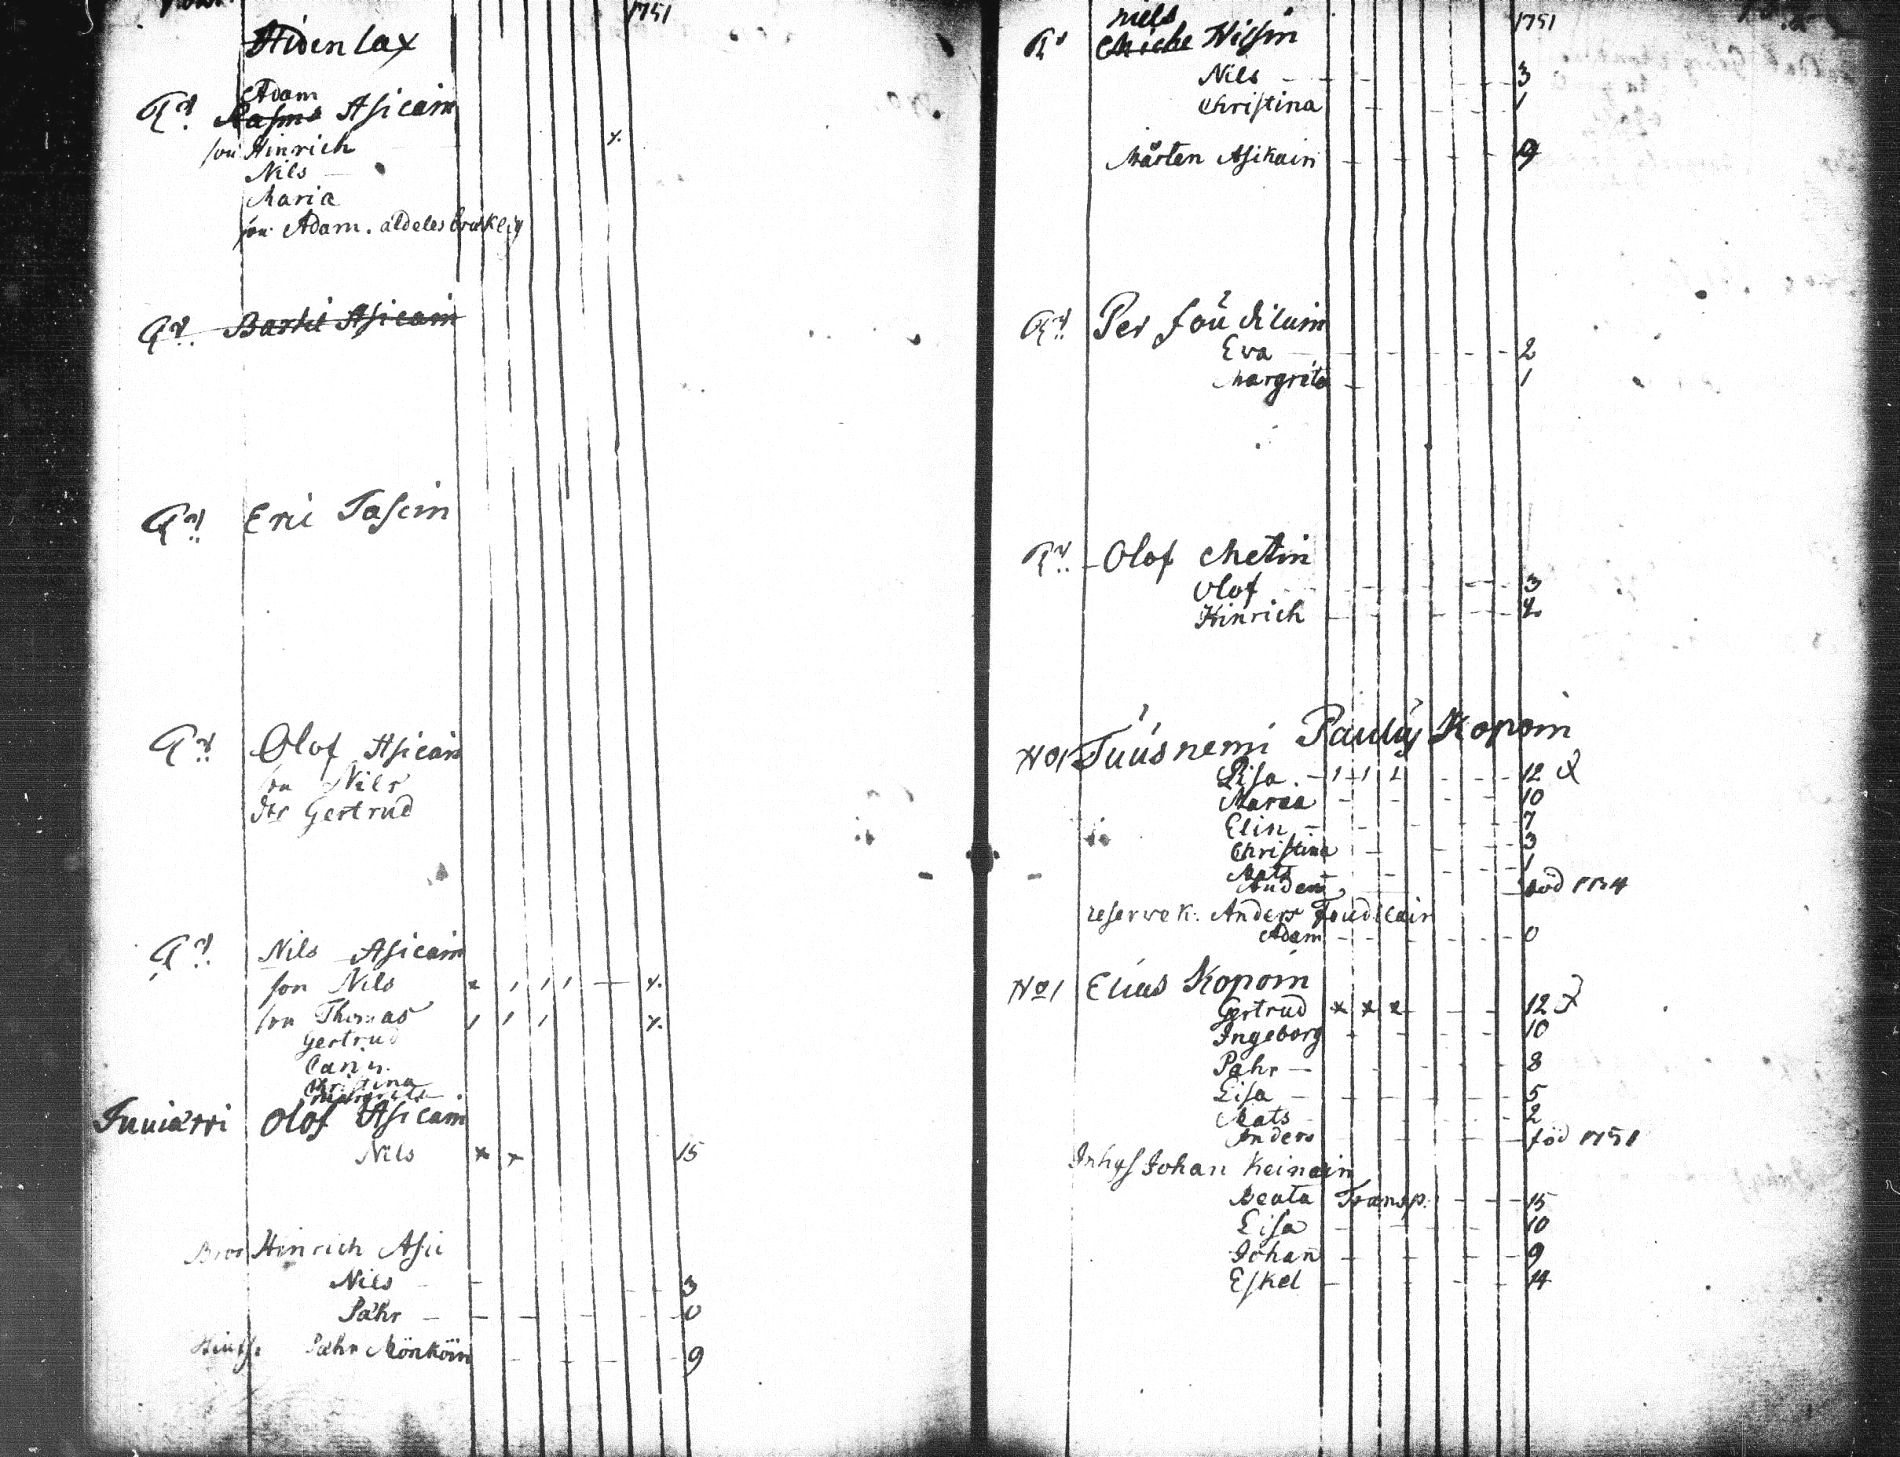 1751
Hidenlax
Adam
Rasmus Asicain
son Hinrich
Nils
Maria
son Adam. aldeles bräklig
Bartil Asicain
Eric Tascin
Olof Asicain
son Nils
dtr Gertrud
Nils Asicain
son Nils
son Thomas
Gertrud
Carin
Christina
Margreta
Juuiärri Olof Asicain
Nils 15
Bror Hinrich Asii
Nils 3
Påhr 0
Påhr Mönköin 9
1751
niels
Miche Nissin
Nils 3
Christina 1
Mårten Asikain 9
Per Foudilain
Eva 2
Margreta 1
Olof Metin
Olof 3
Hinrich 4
No 1 Tuusnemi Paulus Kopoin
Lisa 1 1 1 12
Maria 10
Elin 7
Christina 3
Mats 1
Anders född 1754
reserve k. Anders Foudilain
Adam 0
No 1 Elias Kopoin
Gertrud x x x 12
Ingeborg 10
Påhr 8
Lisa 5
Mats 2
Anders föd 1751
Inhys Johan Keinain
Beata Transp. 15
Lisa 10
Johan 9
Eskel 14